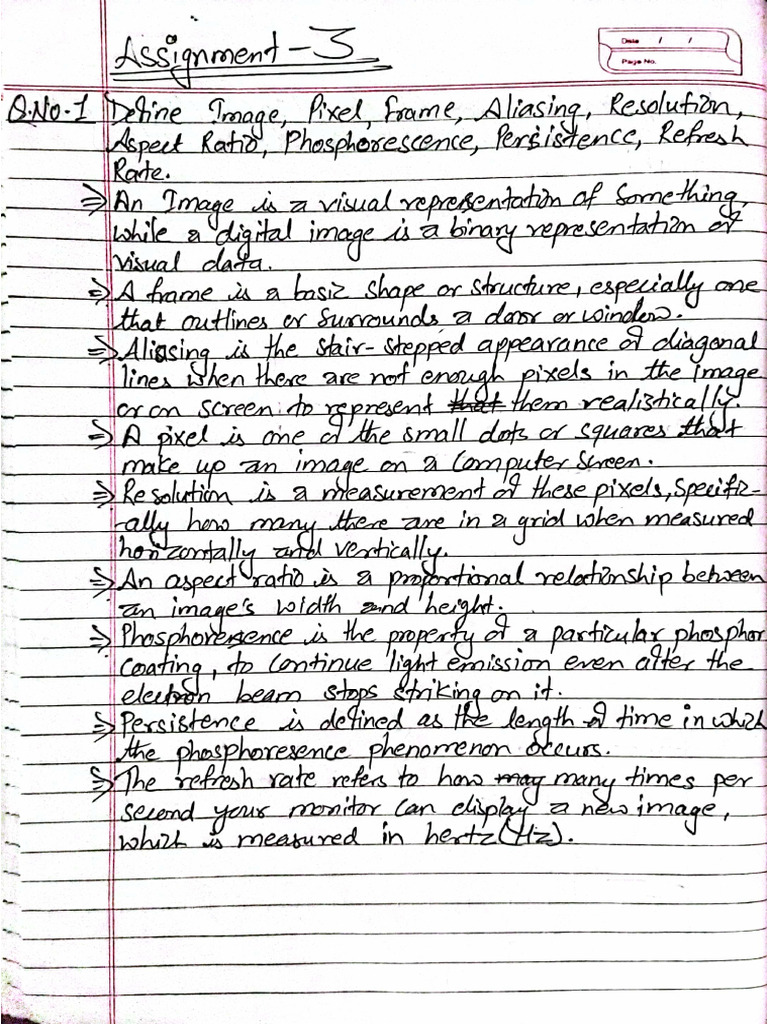 Assignment - 3
Date / /
Page No.
Q.No-1 Define Image, Pixel, Frame, Aliasing, Resolution,
Aspect Ratio, Phosphorescence, Persistence, Refresh
Rate.
⇒ An Image is a visual representation of something,
while a digital image is a binary representation of
visual data.
⇒ A frame is a basic shape or structure, especially one
that outlines or surrounds a door or window.
⇒ Aliasing is the stair-stepped appearance of diagonal
lines when there are not enough pixels in the image
or on screen to represent that them realistically.
⇒ A pixel is one of the small dots or squares that
make up an image on a computer screen.
⇒ Resolution is a measurement of these pixels, specific-
-ally how many there are in a grid when measured
horizontally and vertically.
⇒ An aspect ratio is a proportional relationship between
an image's width and height.
⇒ Phosphoresence is the property of a particular phosphor
coating, to continue light emission even after the
electron beam stops striking on it.
⇒ Persistence is defined as the length of time in which
the phosphoresence phenomenon occurs.
⇒ The refresh rate refers to how may many times per
second your monitor can display a new image,
which is measured in hertz (Hz).